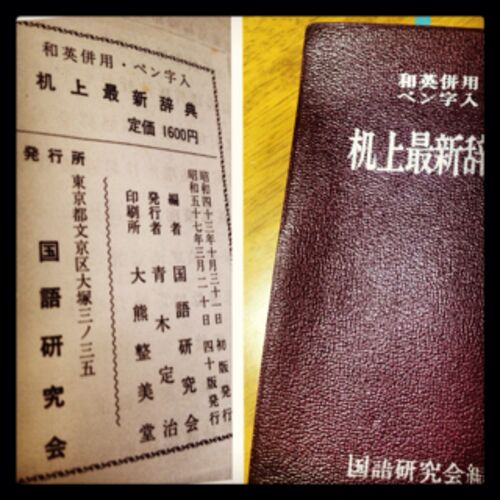 和英併用・ペン字入
机上最新辞典
定価 1600円
昭和四十三年十月三十一日 初版発行
昭和五十七年三月二十日 四十版発行
編者 国語研究会
発行者 青木定治
印刷所 大熊整美堂
発行所
東京都文京区大塚三ノ三五
国語研究会
和英併用
ペン字入
机上最新辞
国語研究会編